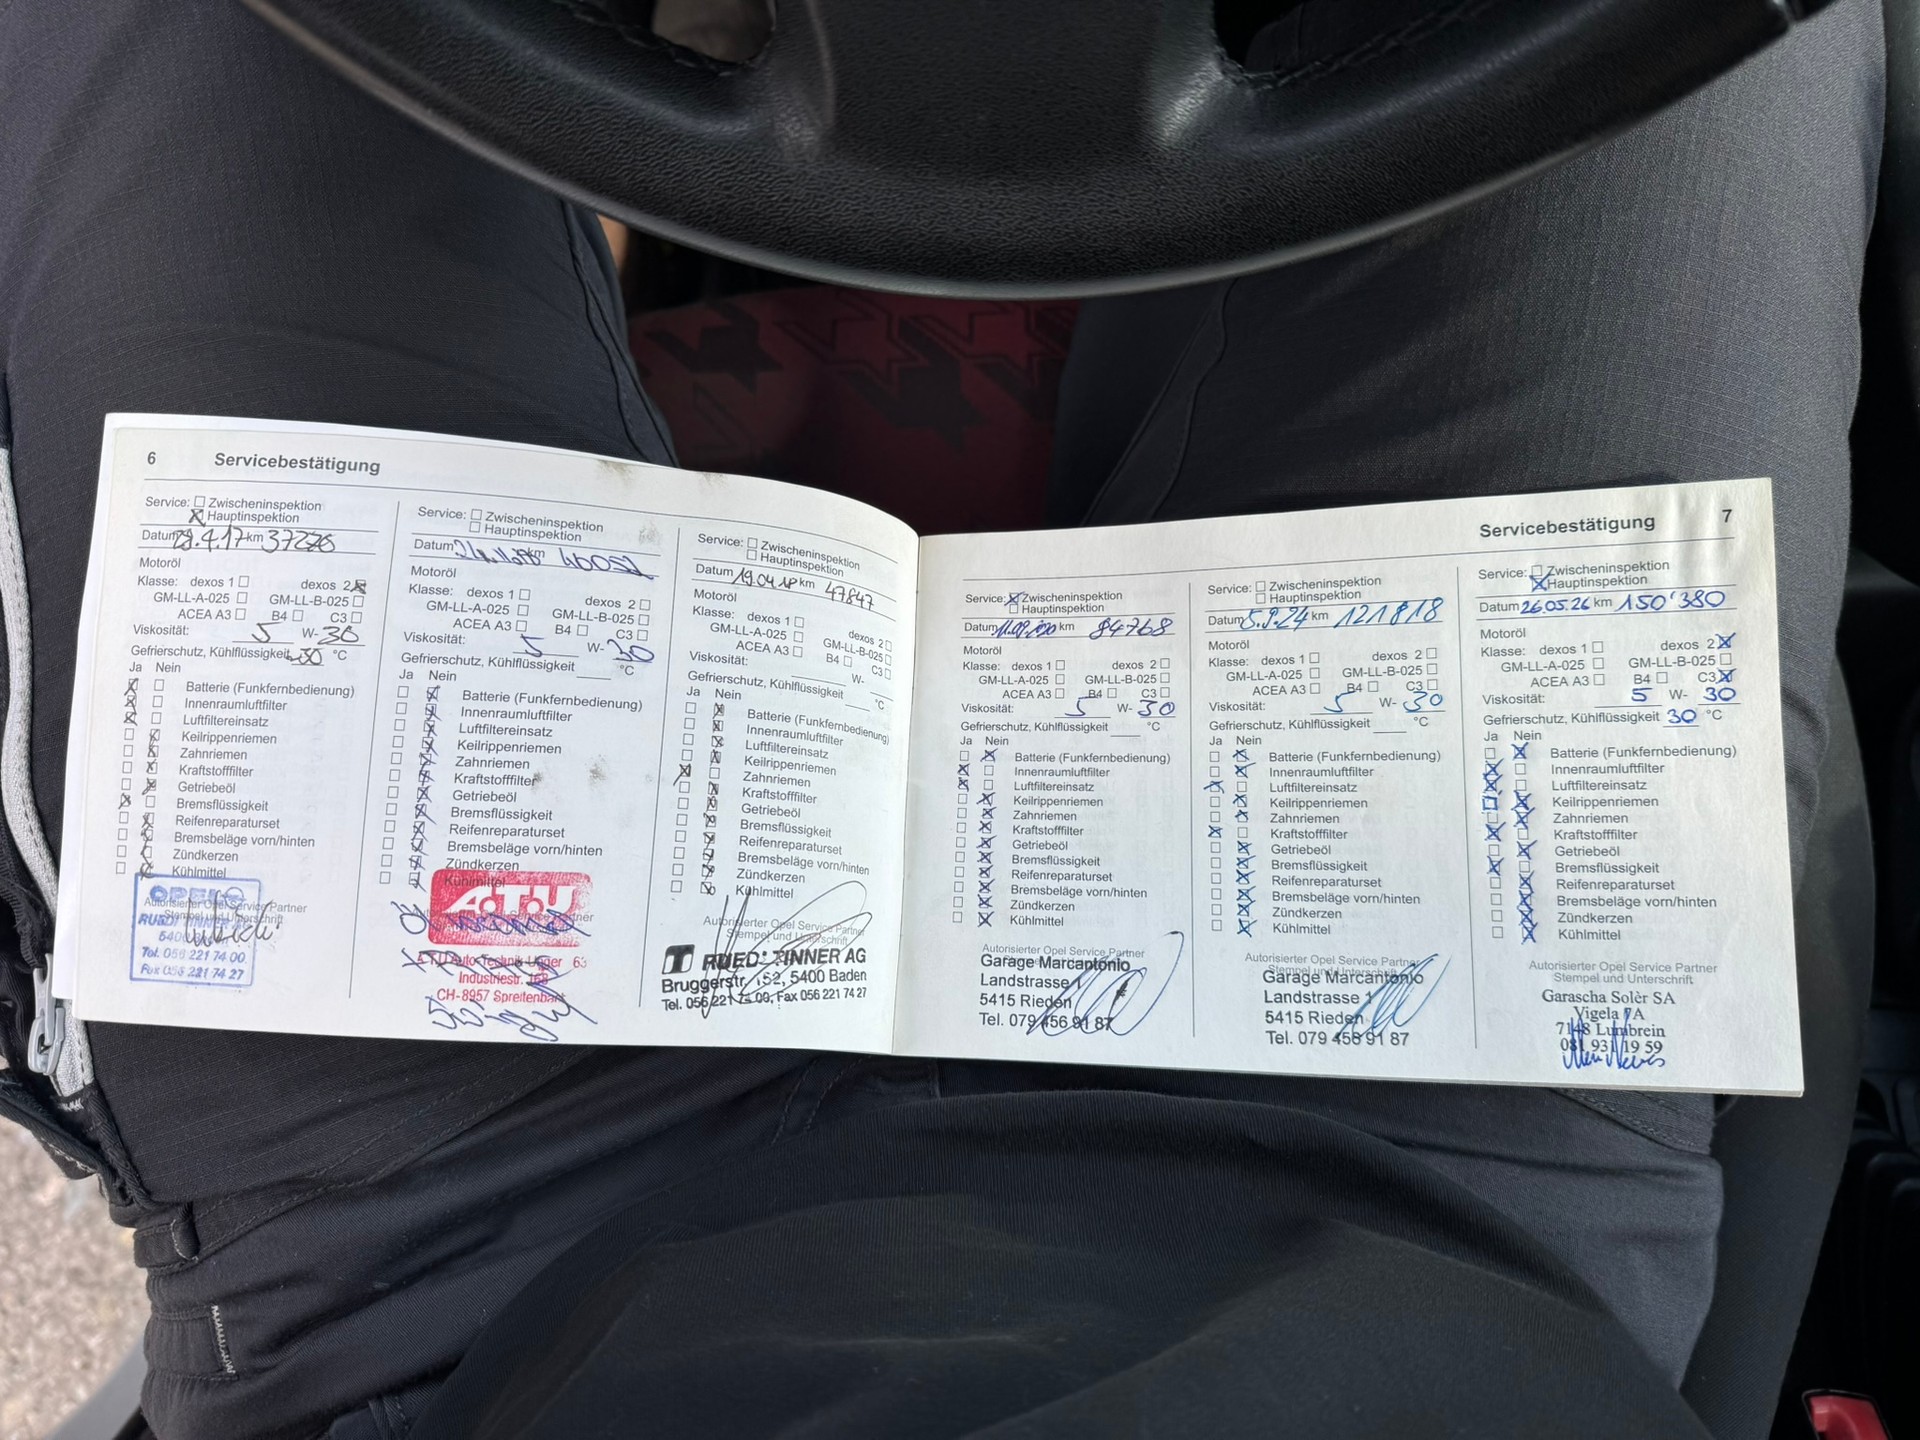 6 Servicebestätigung
Service: Zwischeninspektion
Hauptinspektion
Datum 29.4.17 km 37276
Motoröl
Klasse: dexos 1 dexos 2
GM-LL-A-025 GM-LL-B-025
ACEA A3 B4 C3
Viskosität: 5 W- 30
Gefrierschutz, Kühlflüssigkeit -30 °C
Ja Nein
Batterie (Funkfernbedienung)
Innenraumluftfilter
Luftfiltereinsatz
Keilrippenriemen
Zahnriemen
Kraftstofffilter
Getriebeöl
Bremsflüssigkeit
Reifenreparaturset
Bremsbeläge vorn/hinten
Zündkerzen
Kühlmittel
OPEL
Autorisierter Opel Service Partner
Stempel und Unterschrift
Tel. 056 221 74 00
Fax 056 221 74 27
Service: Zwischeninspektion
Hauptinspektion
Datum km
Motoröl
Klasse: dexos 1 dexos 2
GM-LL-A-025 GM-LL-B-025
ACEA A3 B4 C3
Viskosität: 5 W- 30
Gefrierschutz, Kühlflüssigkeit °C
Ja Nein
Batterie (Funkfernbedienung)
Innenraumluftfilter
Luftfiltereinsatz
Keilrippenriemen
Zahnriemen
Kraftstofffilter
Getriebeöl
Bremsflüssigkeit
Reifenreparaturset
Bremsbeläge vorn/hinten
Zündkerzen
Kühlmittel
A.T.U
Service Partner
A.T.U Auto-Technik Unger 63
Industriestr. 168
CH-8957 Spreitenbach
Service: Zwischeninspektion
Hauptinspektion
Datum 19.04.18 km 47847
Motoröl
Klasse: dexos 1 dexos 2
GM-LL-A-025 GM-LL-B-025
ACEA A3 B4 C3
Viskosität: W-
Gefrierschutz, Kühlflüssigkeit °C
Ja Nein
Batterie (Funkfernbedienung)
Innenraumluftfilter
Luftfiltereinsatz
Keilrippenriemen
Zahnriemen
Kraftstofffilter
Getriebeöl
Bremsflüssigkeit
Reifenreparaturset
Bremsbeläge vorn/hinten
Zündkerzen
Kühlmittel
Autorisierter Opel Service Partner
Stempel und Unterschrift
RUEDI ZINNER AG
Bruggerstr. 152, 5400 Baden
Tel. 056 221 74 00, Fax 056 221 74 27
Servicebestätigung 7
Service: Zwischeninspektion
Hauptinspektion
Datum 11.09.2020 km 84768
Motoröl
Klasse: dexos 1 dexos 2
GM-LL-A-025 GM-LL-B-025
ACEA A3 B4 C3
Viskosität: 5 W- 30
Gefrierschutz, Kühlflüssigkeit °C
Ja Nein
Batterie (Funkfernbedienung)
Innenraumluftfilter
Luftfiltereinsatz
Keilrippenriemen
Zahnriemen
Kraftstofffilter
Getriebeöl
Bremsflüssigkeit
Reifenreparaturset
Bremsbeläge vorn/hinten
Zündkerzen
Kühlmittel
Autorisierter Opel Service Partner
Garage Marcantonio
Landstrasse 1
5415 Rieden
Tel. 079 456 91 87
Service: Zwischeninspektion
Hauptinspektion
Datum 5.9.24 km 121818
Motoröl
Klasse: dexos 1 dexos 2
GM-LL-A-025 GM-LL-B-025
ACEA A3 B4 C3
Viskosität: 5 W- 30
Gefrierschutz, Kühlflüssigkeit °C
Ja Nein
Batterie (Funkfernbedienung)
Innenraumluftfilter
Luftfiltereinsatz
Keilrippenriemen
Zahnriemen
Kraftstofffilter
Getriebeöl
Bremsflüssigkeit
Reifenreparaturset
Bremsbeläge vorn/hinten
Zündkerzen
Kühlmittel
Autorisierter Opel Service Partner
Stempel und Unterschrift
Garage Marcantonio
Landstrasse 1
5415 Rieden
Tel. 079 456 91 87
Service: Zwischeninspektion
Hauptinspektion
Datum 26.05.26 km 150'380
Motoröl
Klasse: dexos 1 dexos 2
GM-LL-A-025 GM-LL-B-025
ACEA A3 B4 C3
Viskosität: 5 W- 30
Gefrierschutz, Kühlflüssigkeit 30 °C
Ja Nein
Batterie (Funkfernbedienung)
Innenraumluftfilter
Luftfiltereinsatz
Keilrippenriemen
Zahnriemen
Kraftstofffilter
Getriebeöl
Bremsflüssigkeit
Reifenreparaturset
Bremsbeläge vorn/hinten
Zündkerzen
Kühlmittel
Autorisierter Opel Service Partner
Stempel und Unterschrift
Garascha Solèr SA
Vigela 7A
7148 Lumbrein
081 931 19 59